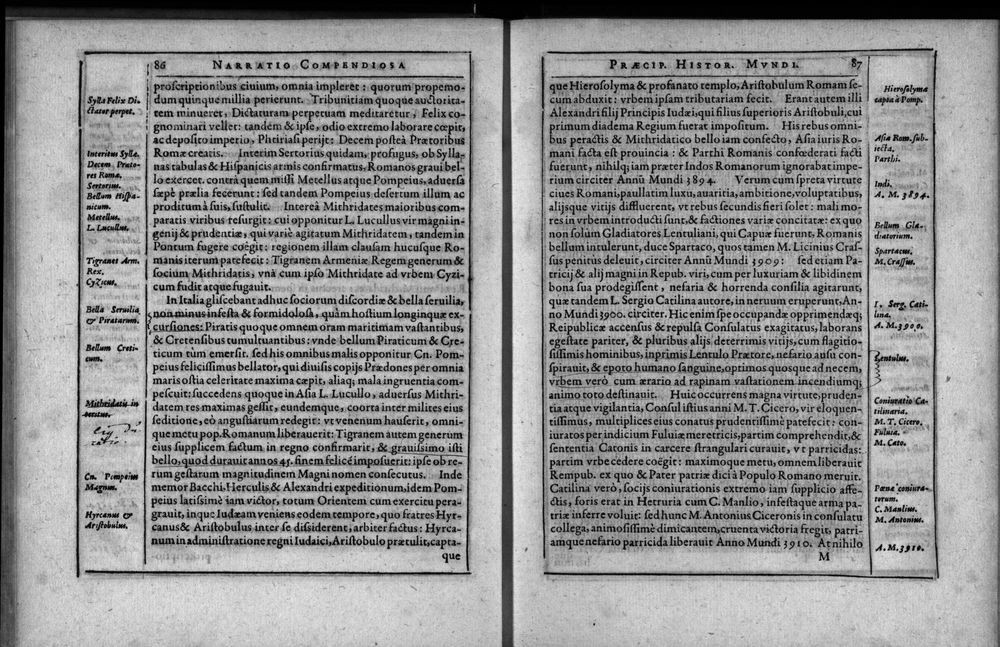 86 NARRATIO COMPENDIOSA
proscriptionibus ciuium, omnia impleret : quorum propemo-
dum quinque millia perierunt. Tribunitiam quoque auctorita-
tem minueret, Dictaturam perpetuam meditaretur, Felix co-
gnominari vellet: tandem & ipse, odio extremo laborare cœpit,
ac deposito imperio, Phtiriasi perijt: Decem posteà Prætoribus
Romæ creatis. Interim Sertorius quidam, profugus, ob Sylla-
nas tabulas & Hispanicis armis confirmatus, Romanos graui bel-
lo exercet. contrà quem missi Metellus atque Pompeius, aduersa
sæpè prælia fecerunt: sed tandem Pompeius desertum illum ac
proditum à suis, sustulit. Intereà Mithridates maioribus com-
paratis viribus resurgit: cui opponitur L. Lucullus vir magni in-
genij & prudentiæ, qui variè agitatum Mithridatem, tandem in
Pontum fugere coëgit: regionem illam clausam hucusque Ro-
manis iterum patefecit: Tigranem Armeniæ Regem generum &
socium Mithridatis, vnà cum ipso Mithridate ad vrbem Cyzi-
cum fudit atque fugauit.
In Italia gliscebant adhuc sociorum discordiæ & bella seruilia,
non minus infesta & formidolosa, quàm hostium longinquæ ex-
cursiones: Piratis quoque omnem oram maritimam vastantibus,
& Cretensibus tumultuantibus: vnde bellum Piraticum & Cre-
ticum tùm emersit. sed his omnibus malis opponitur Cn. Pom-
peius felicissimus bellator, qui diuisis copijs Prædones per omnia
maris ostia celeritate maxima cæpit, aliaq; mala ingruentia com-
pescuit: succedens quoque in Asia L. Lucullo, aduersus Mithri-
datem res maximas gessit, eundemque, coorta inter milites eius
seditione, eò angustiarum redegit: vt venenum hauserit, omni-
que metu pop. Romanum liberauerit: Tigranem autem generum
eius supplicem factum in regno confirmarit, & grauissimo isti
bello, quod durauit annos 45. finem felicē imposuerit: ipse ob re-
rum gestarum magnitudinem Magni nomen consecutus. Inde
memor Bacchi, Herculis & Alexandri expeditionum, idem Pom-
peius latissimè iam victor, totum Orientem cum exercitu pera-
grauit, inque Iudæam veniens eodem tempore, quo fratres Hyr-
canus & Aristobulus inter se dissiderent, arbiter factus: Hyrca-
num in administratione regni Iudaici, Aristobulo prætulit, capta-
que
Sylla Felix Di-
ctator perpet.
Interitus Syllæ.
Decem Præto-
res Romæ.
Sertorius.
Bellum Hispa-
nicum.
Metellus.
L. Lucullus.
Tigranes Arm.
Rex.
Cyzicus.
Bella Seruilia
& Piratarum.
Bellum Creti-
cum.
Mithridatis in
teritus.
Cn. Pompeius
Magnus.
Hyrcanus &
Aristobulus.
PRÆCIP. HISTOR. MVNDI. 87
que Hierosolyma & profanato templo, Aristobulum Romam se-
cum abduxit: vrbem ipsam tributariam fecit. Erant autem illi
Alexandri filij Principis Iudæi, qui filius superioris Aristobuli, cui
primum diadema Regium fuerat impositum. His rebus omni-
bus peractis & Mithridatico bello iam confecto, Asia iuris Ro-
mani facta est prouincia: & Parthi Romanis confœderati facti
fuerunt, nihilq; iam præter Indos Romanorum ignorabat impe-
rium circiter Annū Mundi 3894. Verum cum spreta virtute
ciues Romani, paullatim luxu, auaritia, ambitione, voluptatibus,
alijsque vitijs diffluerent, vt rebus secundis fieri solet: mali mo-
res in vrbem introducti sunt, & factiones variæ concitatæ: ex quo
non solùm Gladiatores Lentuliani, qui Capuæ fuerunt, Romanis
bellum intulerunt, duce Spartaco, quos tamen M. Licinius Cras-
sus penitus deleuit, circiter Annū Mundi 3909: sed etiam Pa-
tricij & alij magni in Repub. viri, cum per luxuriam & libidinem
bona sua prodegissent, nefaria & horrenda consilia agitarunt,
quæ tandem L. Sergio Catilina autore, in neruum eruperunt, An-
no Mundi 3900. circiter. Hic enim spe occupandæ opprimendæq;
Reipublicæ accensus & repulsa Consulatus exagitatus, laborans
egestate pariter, & pluribus alijs deterrimis vitijs, cum flagitio-
sissimis hominibus, inprimis Lentulo Prætore, nefario ausu con-
spirauit, & epoto humano sanguine, optimos quosque ad necem,
vrbem verò cum ærario ad rapinam vastationem incendiumq;
animo toto destinauit. Huic occurrens magna virtute, pruden-
tia atque vigilantia, Consul istius anni M. T. Cicero, vir eloquen-
tissimus, multiplices eius conatus prudentissimè patefecit: con-
iuratos per indicium Fuluiæ meretricis, partim comprehendit, &
sententia Catonis in carcere strangulari curauit, vt parricidas:
partim vrbe cedere coëgit: maximoque metu, omnem liberauit
Rempub. ex quo & Pater patriæ dici à Populo Romano meruit.
Catilina verò, socijs coniurationis extremo iam supplicio affe-
ctis, foris erat in Hetruria cum C. Manlio, infestaque arma pa-
triæ inferre voluit: sed hunc M. Antonius Ciceronis in consulatu
collega, animosissimè dimicantem, cruenta victoria fregit, patri-
amque nefario parricida liberauit Anno Mundi 3910. At nihilo
M
Hierosolyma
capta à Pomp.
Asia Rom. sub-
iecta.
Parthi.
Indi.
A. M. 3894.
Bellum Gla-
diatorium.
Spartacus.
M. Crassus.
L. Serg. Cati-
lina.
A. M. 3900.
Lentulus.
Coniuratio Ca-
tilinaria.
M. T. Cicero.
Fuluia.
M. Cato.
Pœna coniura-
torum.
C. Manlius.
M. Antonius.
A. M. 3910.